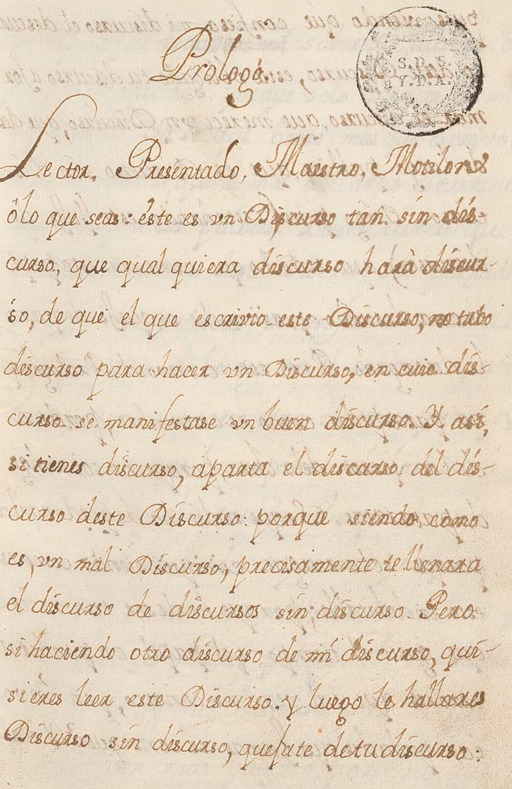 Prologo.
S.D.S.
Y.D.A.
Lector, Presentado, Maestro, Motilon ẏ
ôlo que seas: êste es vn Discurso tan sin dis-
curso, que qual quiera discurso harà discur-
so, de que el que escrivio este Discurso, no tubo
discurso para hacer vn Discurso, en cuio dis-
curso se manifestase vn buen discurso. Y asi,
si tienes discurso, aparta el discurso del dis-
curso deste Discurso: porque siendo, como
es, vn mal Discurso, precisamente te llenara
el discurso de discursos sin discurso. Pero
si haciendo otro discurso de mi discurso, qui-
sieres leer este Discurso. y luego le hallares
Discurso sin discurso, quejate de tu discurso: